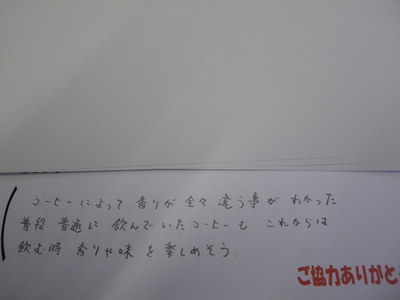 コーヒーによって 香りが 全々 違う事が わかった
普段 普通に 飲んでいたコーヒーも これからは
飲む時 香りや味 を 楽しめそう.
ご協力ありがと